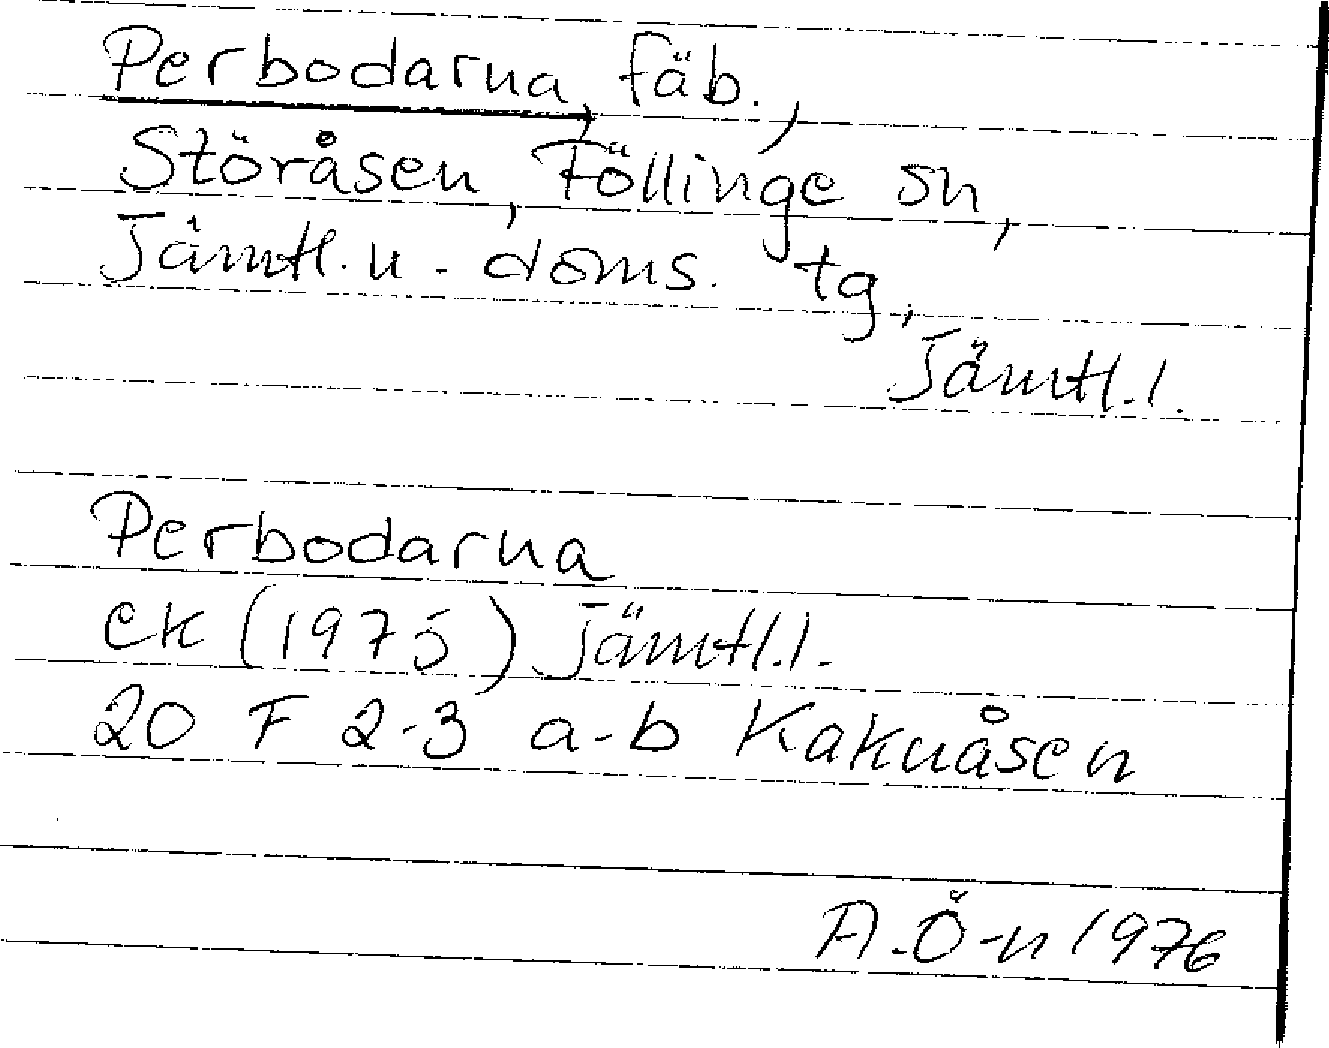 Perbodarna, fäb.,
Störåsen, Föllinge sn,
Jämtl. n. doms. tg,
Jämtl. l.
Perbodarna
ek (1975) Jämtl. l.
20 F 2-3 a-b Kakuåsen
A. Ö-n 1976